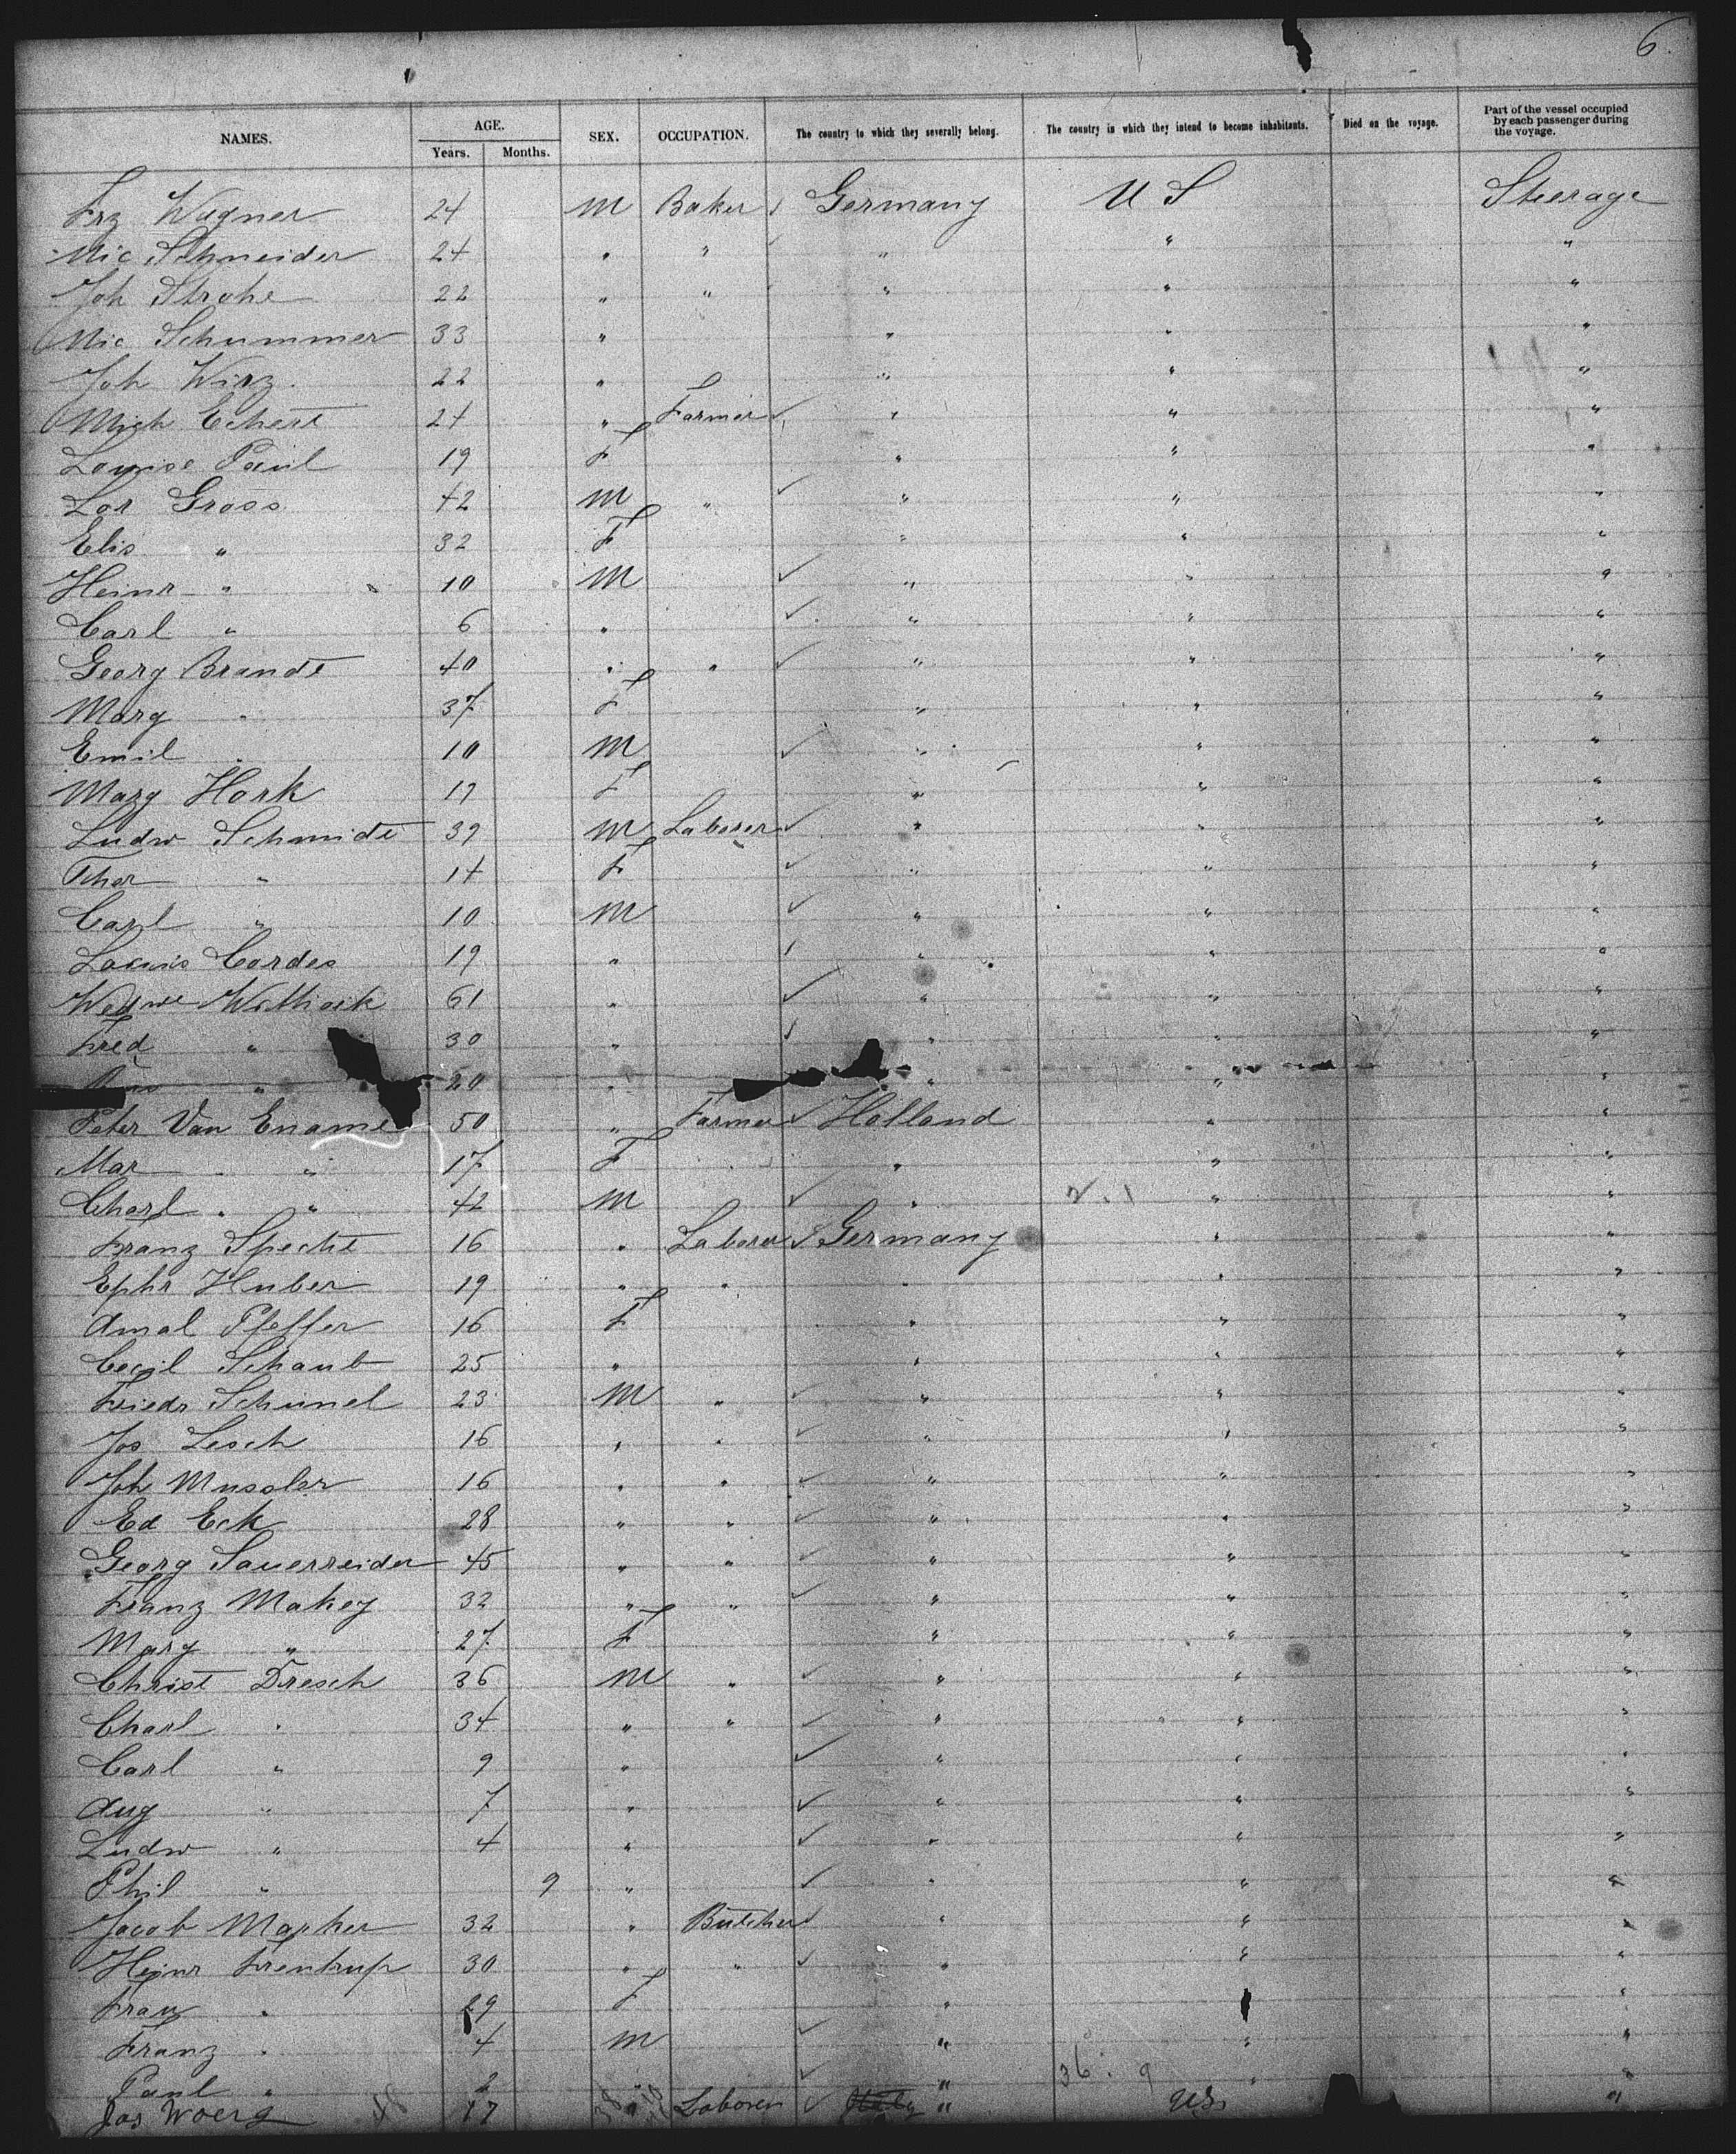 6
NAMES. AGE. SEX. OCCUPATION. The country to which they severally belong. The country in which they intend to become inhabitants. Died on the voyage. Part of the vessel occupied by each passenger during the voyage.
Years. Months.
Frz Wagner 24 M Baker Germany U S Steerage
Nic Schneider 24 " " " " "
Joh Strohe 22 " " " " "
Nic Schummer 33 " " " "
Joh Wirz 22 " " " "
Mich Echert 24 " Farmer " " "
Louise Paul 19 F " " "
Lor Gross 42 M " " " "
Elis " 32 F " " "
Heinr " 10 M " " "
Carl " 6 " " " "
Georg Brandt 40 " " " " "
Marg " 37 F " " "
Emil " 10 M " " "
Marg Hork 17 F " " "
Ludw Schmidt 39 M Laborer " " "
Ther " 14 F " " "
Carl " 10 M " " "
Louis Cordes 19 " " " "
61 " " " "
Fred " 30 " " " "
" 20 " " " "
Peter Van Ename 50 " Farmer Holland " "
Mar " 17 F " " "
Charl " 42 M " " "
Franz Specht 16 " Laborer Germany " "
Ephr Huber 19 " " " " "
Amal Pfeffer 16 F " " "
Cecil Schaub 25 " " " "
Friedr Schimel 23 M " " " "
Jos Lesch 16 " " " " "
Joh Mussler 16 " " " " "
Ed Eck 28 " " " " "
Georg Sauerreider 45 " " " " "
Franz Makey 32 " " " " "
Marg " 27 F " " "
Christ Dresch 36 M " " " "
Charl " 34 " " " " "
Carl " 9 " " " "
Aug " 7 " " " "
Ludw " 4 " " " "
Phil " 9 " " " "
Jacob Mapher 32 " Butcher " " "
Heinr Frentrup 30 " " " " "
Frau " 29 F " " "
Franz " 4 M " " "
Paul " 2 " " 36 . 9 " "
Jos Woerg 17 " Laborer Italy " US "